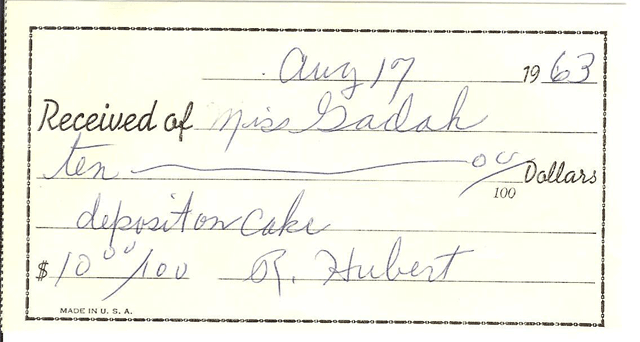 Aug 17 1963
Received of Miss Gadah
ten 00/100 Dollars
deposit on cake
$ 10 00/100 R. Hubert
MADE IN U. S. A.